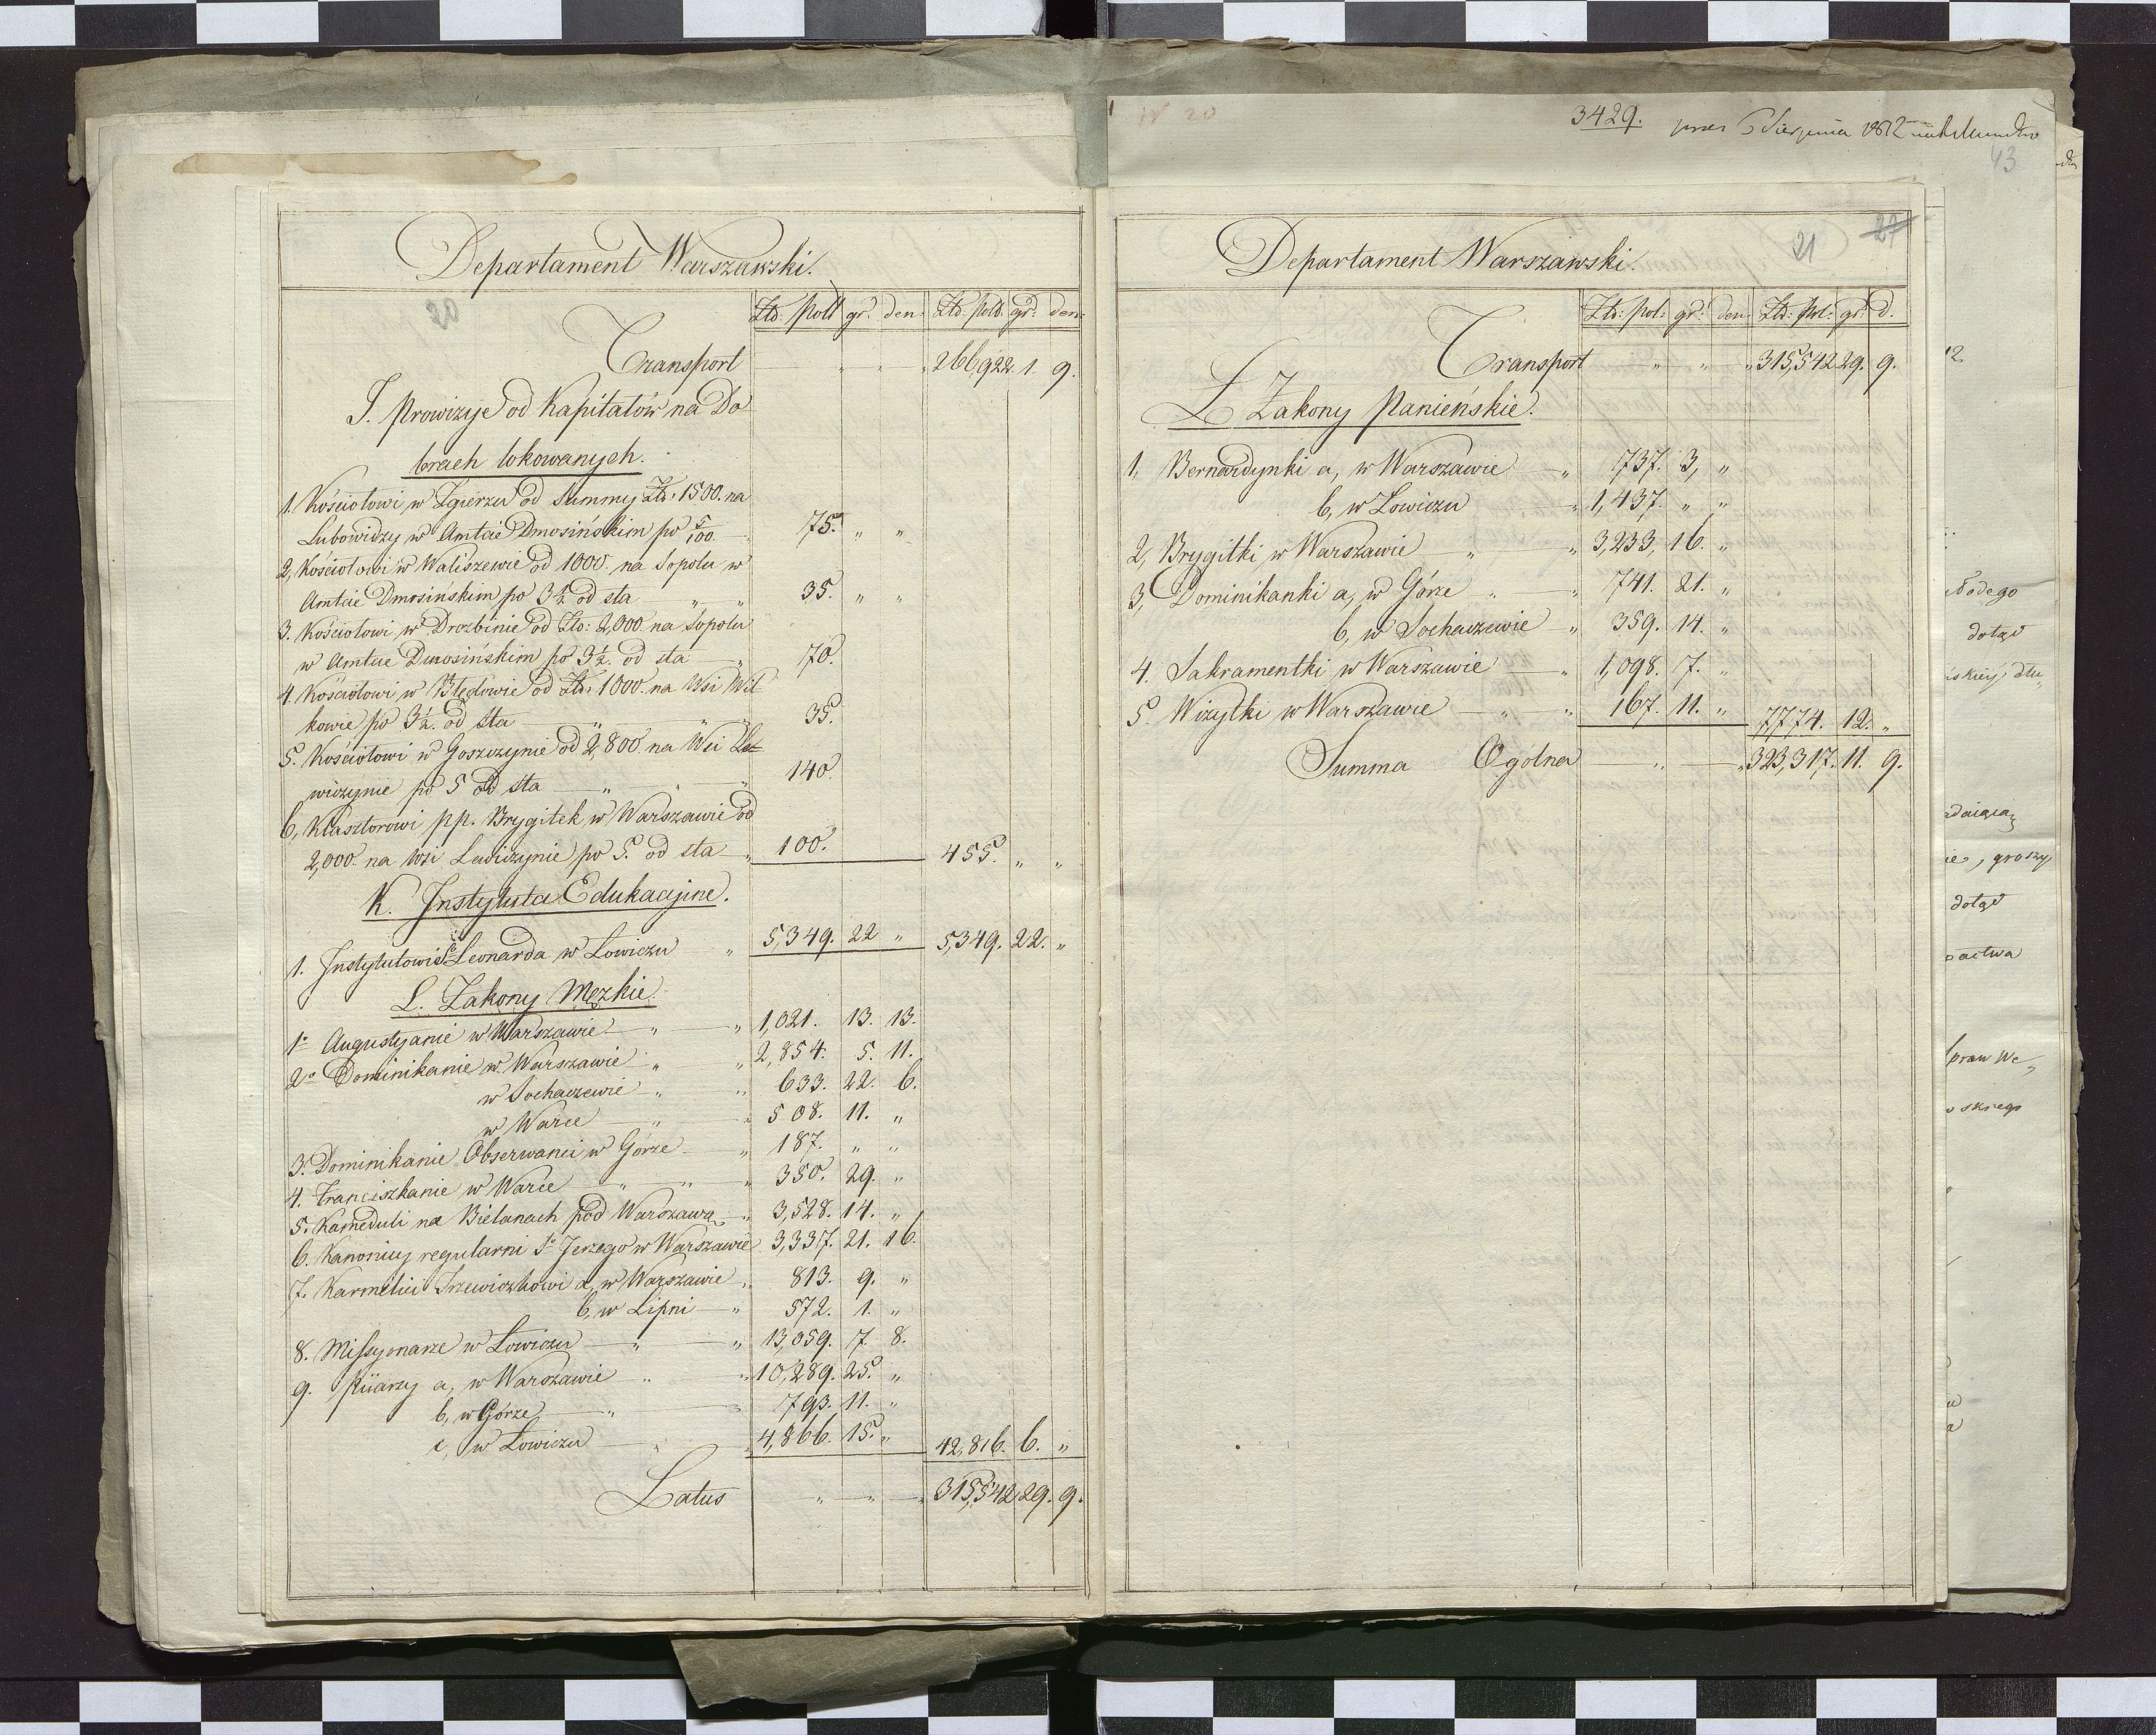 Departament Warszawski.
20
Złt. Poll gr. den. Złt. Poll. gr. den.
Transport " " " 266,922. 1. 9.
J. Prowizye od Kapitałów na Do
brach lokowanych.
1. Kościołowi w Zgierzu od Summy Złt: 1500. na
Lubowidzy w Amtcie Dmosińskim po 5/100. 75. " "
2, Kościołowi w Waliszewie od 1000. na Popolu w
Amtcie Dmosińskim po 3½ od sta " " 35. " "
3. Kościołowi w Drozbinie od Złt: 2,000 na Popolu
w Amtcie Dmosińskim po 3½. od sta 70.
4. Kościołowi w Błędowie od Złt: 1000. na Wsi Wil
kowie po 3½. od sta 35.
5. Kościołowi w Goszczynie od 2,800. na Wsi
wiczynie po 5 od sta 140.
6, Klasztorowi pp. Brygitek w Warszawie od
2,000. na Wsi Lewiczynie po 5. od sta 100. 455. " "
K. Instytuta Edukacyine.
1. Instytutowi S. Leonarda w Łowiczu " 5,349. 22 " 5,349. 22. "
L. Zakony Męzkie.
1° Augustyanie w Warszawie " " 1,021. 13. 13.
2° Dominikanie w Warszawie " " 2,854. 5. 11.
w Sochaczewie " " 633. 22. 6.
w Warce " " 508. 11. "
3. Dominikanie Obserwanci w Górze " 187. " "
4. Franciszkanie w Warce " " " 350. 29. "
5. Kameduli na Bielanach pod Warszawą " 3,528. 14. "
6. Kanonicy regularni S° Jerzego w Warszawie 3,337. 21. 16.
7. Karmelici Trzewiczkowi a, w Warszawie " 813. 9. "
b, w Lipni " 572. 1. "
8. Missyonarze w Łowiczu " " 13,059. 7. 8.
9. Piiarzy a, w Warszawie " " 10,289. 25. "
b, w Górze " " 793. 11. "
c, w Łowiczu " " 4,866. 15. " 42,816. 6. "
Latus " " " 315,542 29. 9.
N 20
3429.
Sierpnia 1812
43
21 27
Departament Warszawski.
Złt: Pol: gr: den. Złt: Pol: gr: d.
Transport " " " 315,542 29. 9.
L Zakony Panieńskie.
1, Bernardynki a, w Warszawie " 737. 3, "
b, w Łowiczu " 1,437. " "
2, Brygitki w Warszawie " " 3,233, 16. "
3, Dominikanki a, w Górze " " 741. 21. "
b, w Sochaczewie " 359. 14. "
4. Sakramentki w Warszawie " 1,098. 7. "
5. Wizytki w Warszawie " " 167. 11. " 7,774. 12. "
Summa Ogólna " " 323,317. 11. 9.
12
dotąd
groszy
dotąd
praw We